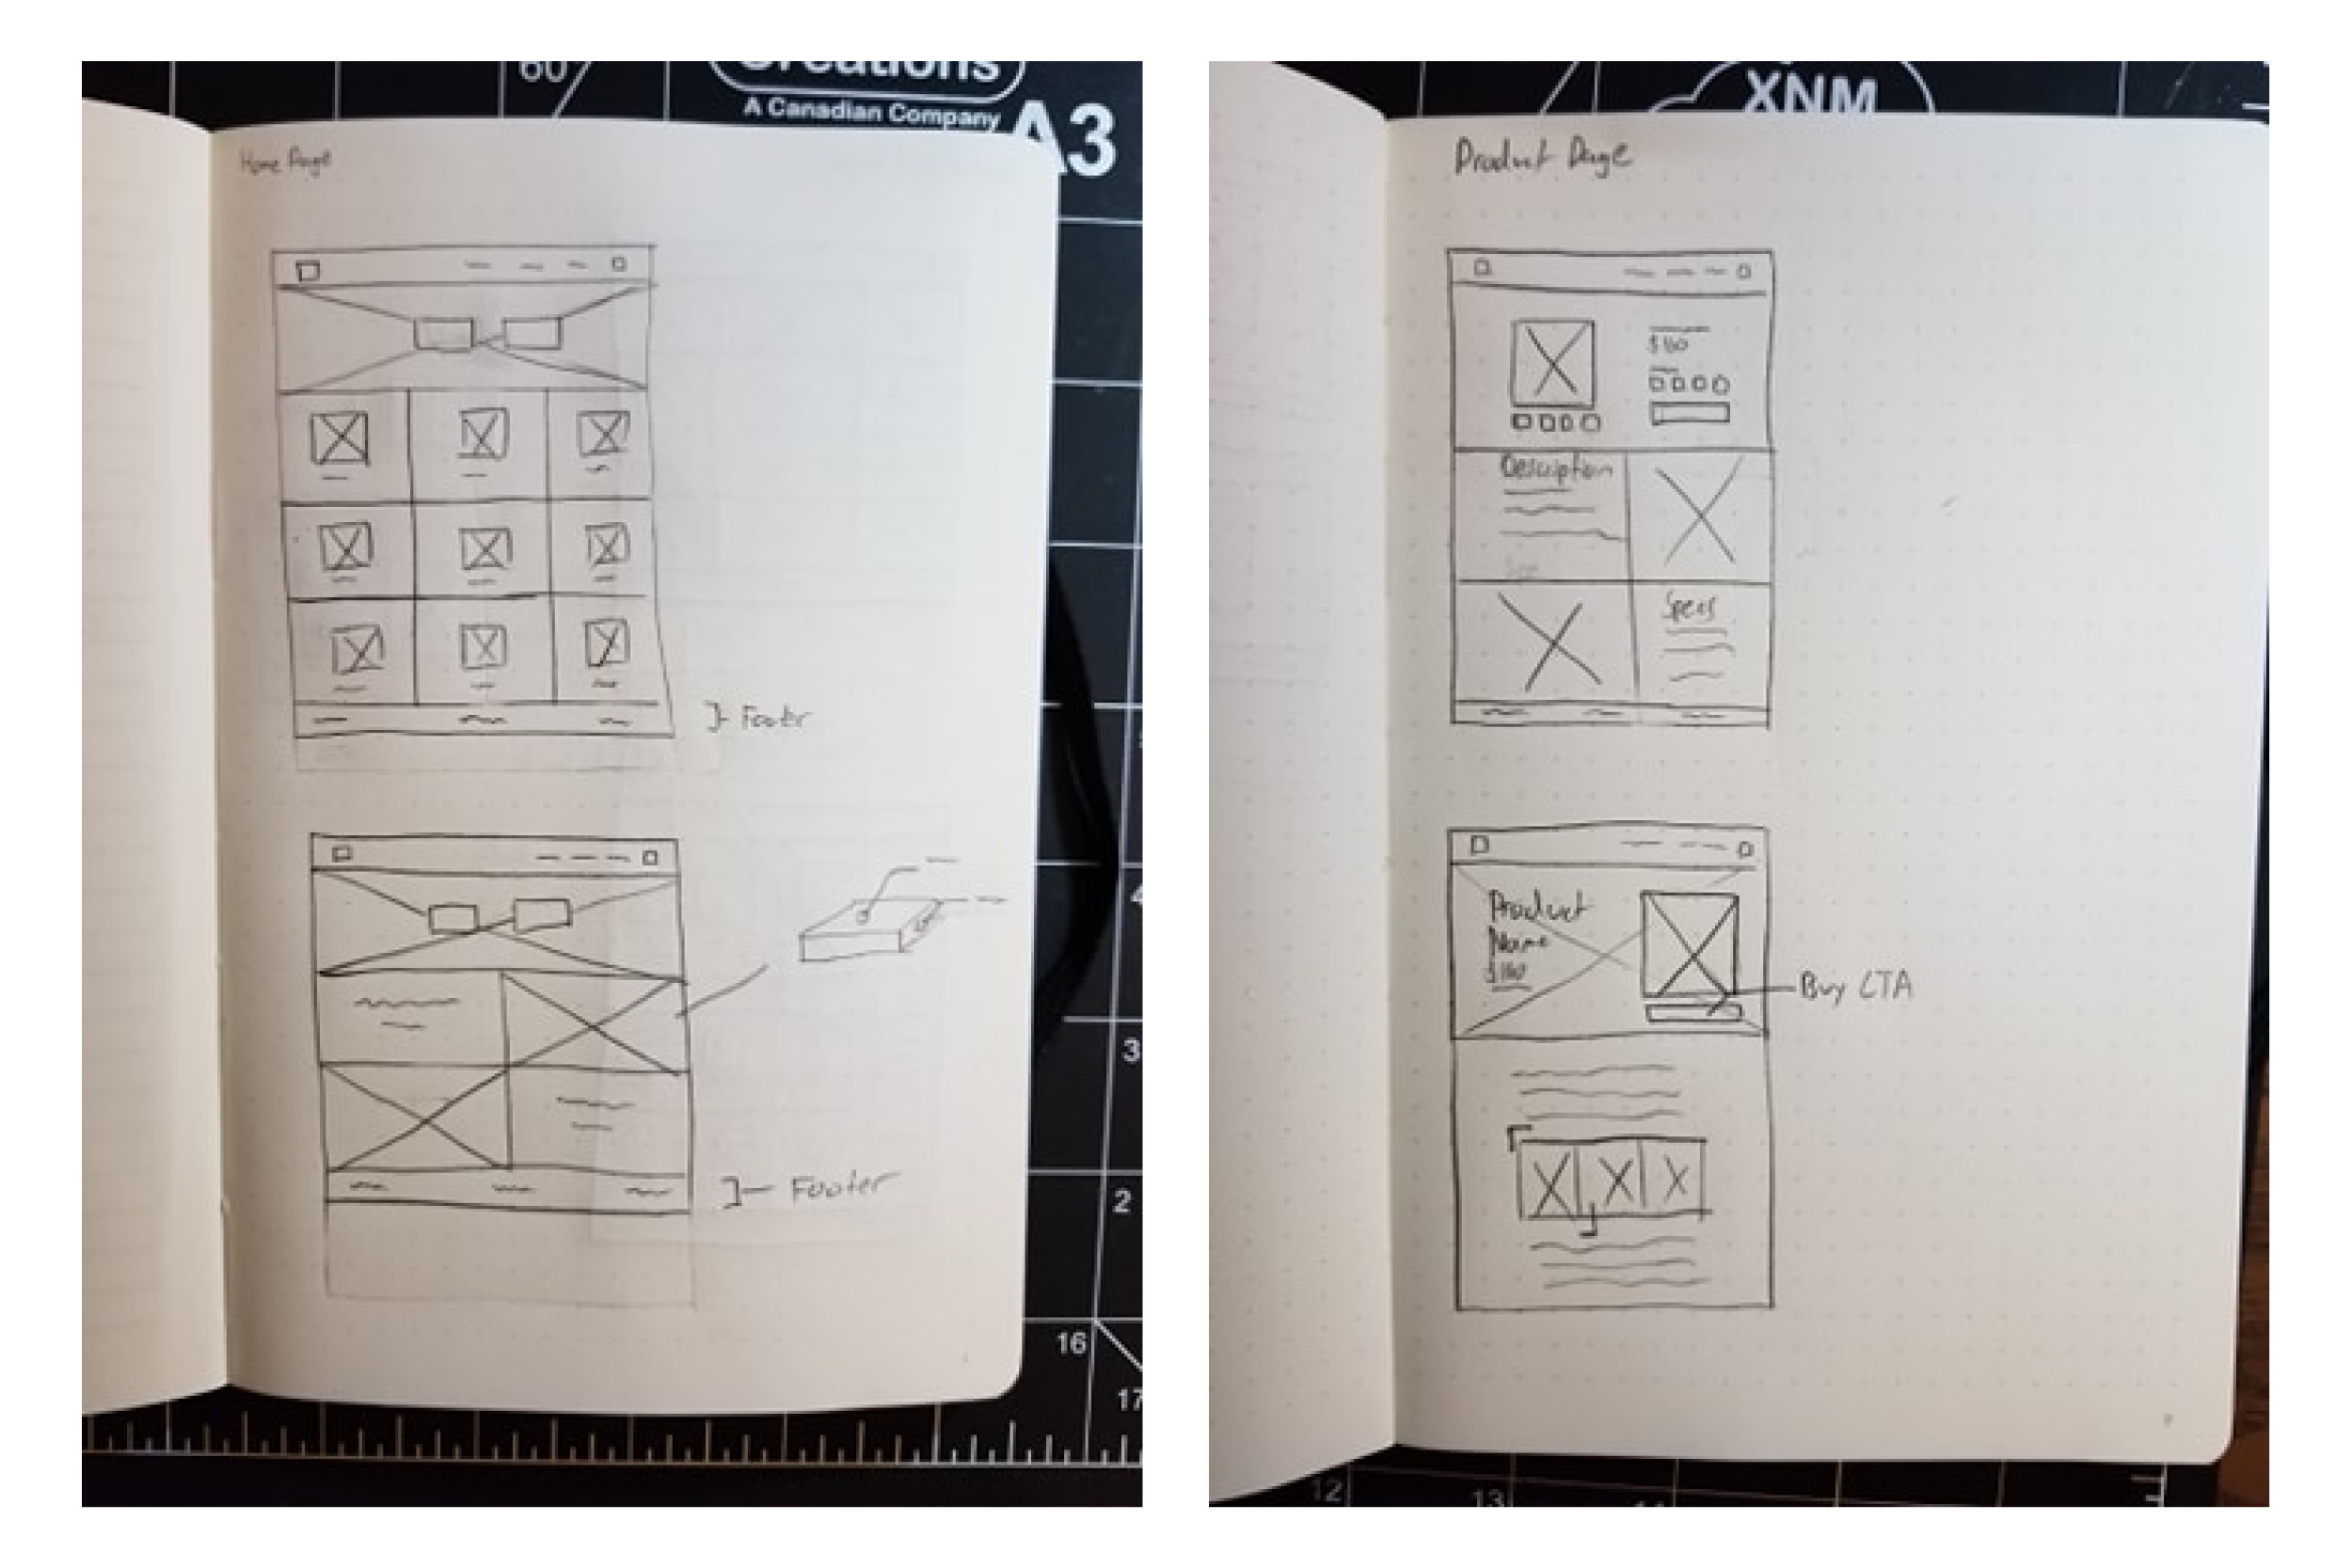 60
Creations
A Canadian Company
A3
Home Page
Footer
Footer
4
3
2
16
17
XNM
Product Page
$160
Description
Specs
Product
Name
$160
Buy CTA
12
13